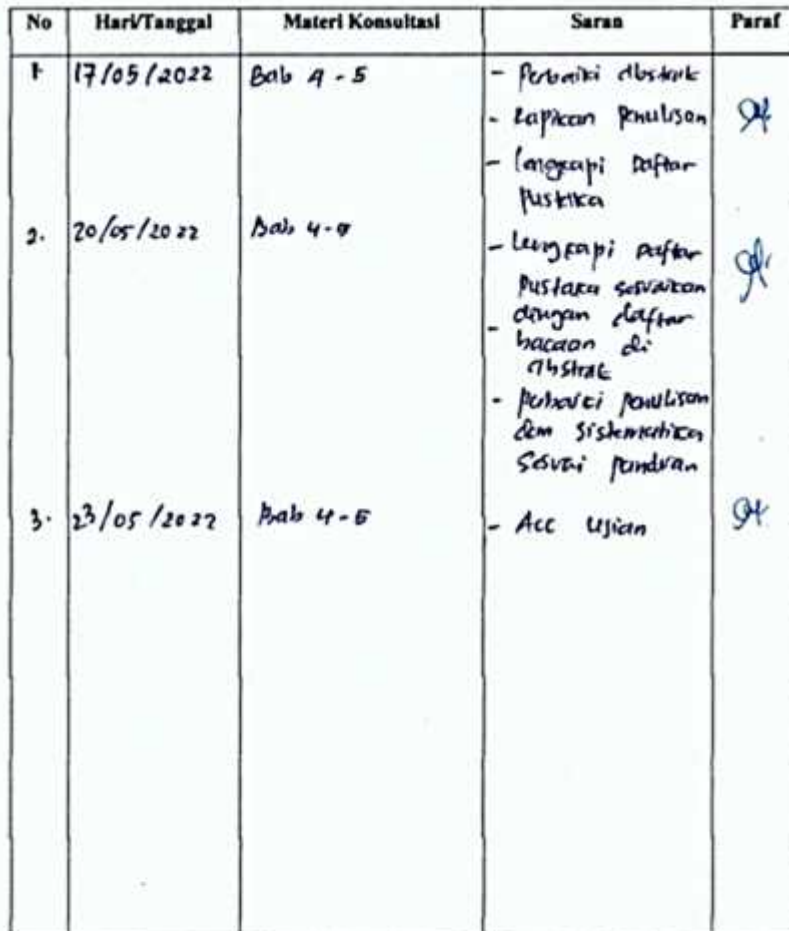 No Hari/Tanggal Materi Konsultasi Saran Paraf
1. 17/05/2022 Bab 4 - 5 - Perbaiki abstrak
- Rapikan Penulisan
- lengkapi Daftar
Pustaka
2. 20/05/2022 Bab 4-5 - Lengkapi Daftar
Pustaka sesuaikan
- dengan daftar
bacaan di
abstrak
- Perbaiki Penulisan
dan Sistematika
Sesuai panduan
3. 23/05/2022 Bab 4-5 - Acc Ujian